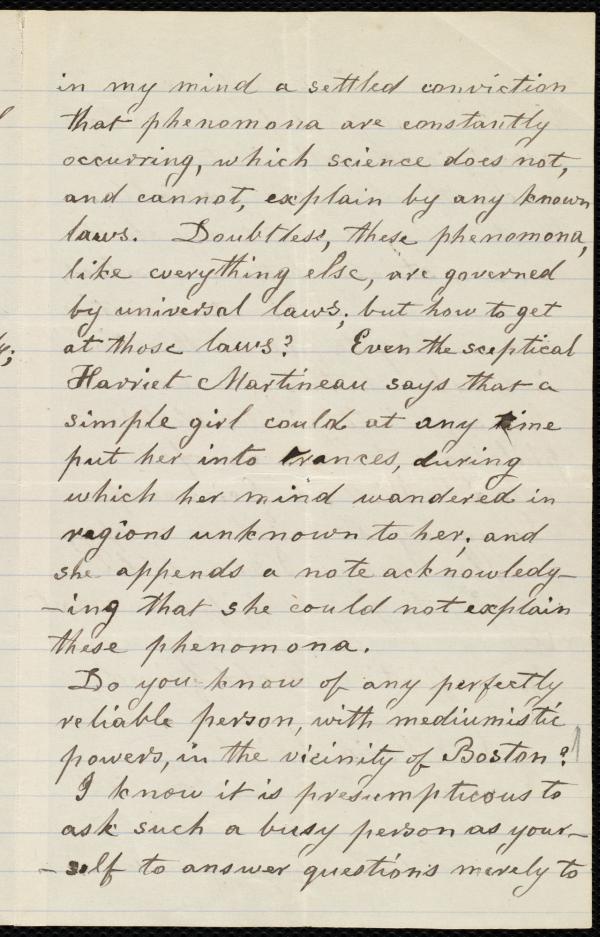 in my mind a settled conviction
that phenomona are constantly
occurring, which science does not,
and cannot, explain by any known
laws. Doubtless, these phenomona,
like everything else, are governed
by universal laws; but how to get
at those laws? Even the sceptical
Harriet Martineau says that a
simple girl could at any time
put her into trances, during
which her mind wandered in
regions unknown to her; and
she appends a note acknowledg-
-ing that she could not explain
these phenomona.
Do you know of any perfectly
reliable person, with mediumistic
powers, in the vicinity of Boston?
I know it is presumptuous to
ask such a busy person as your-
-self to answer questions merely to